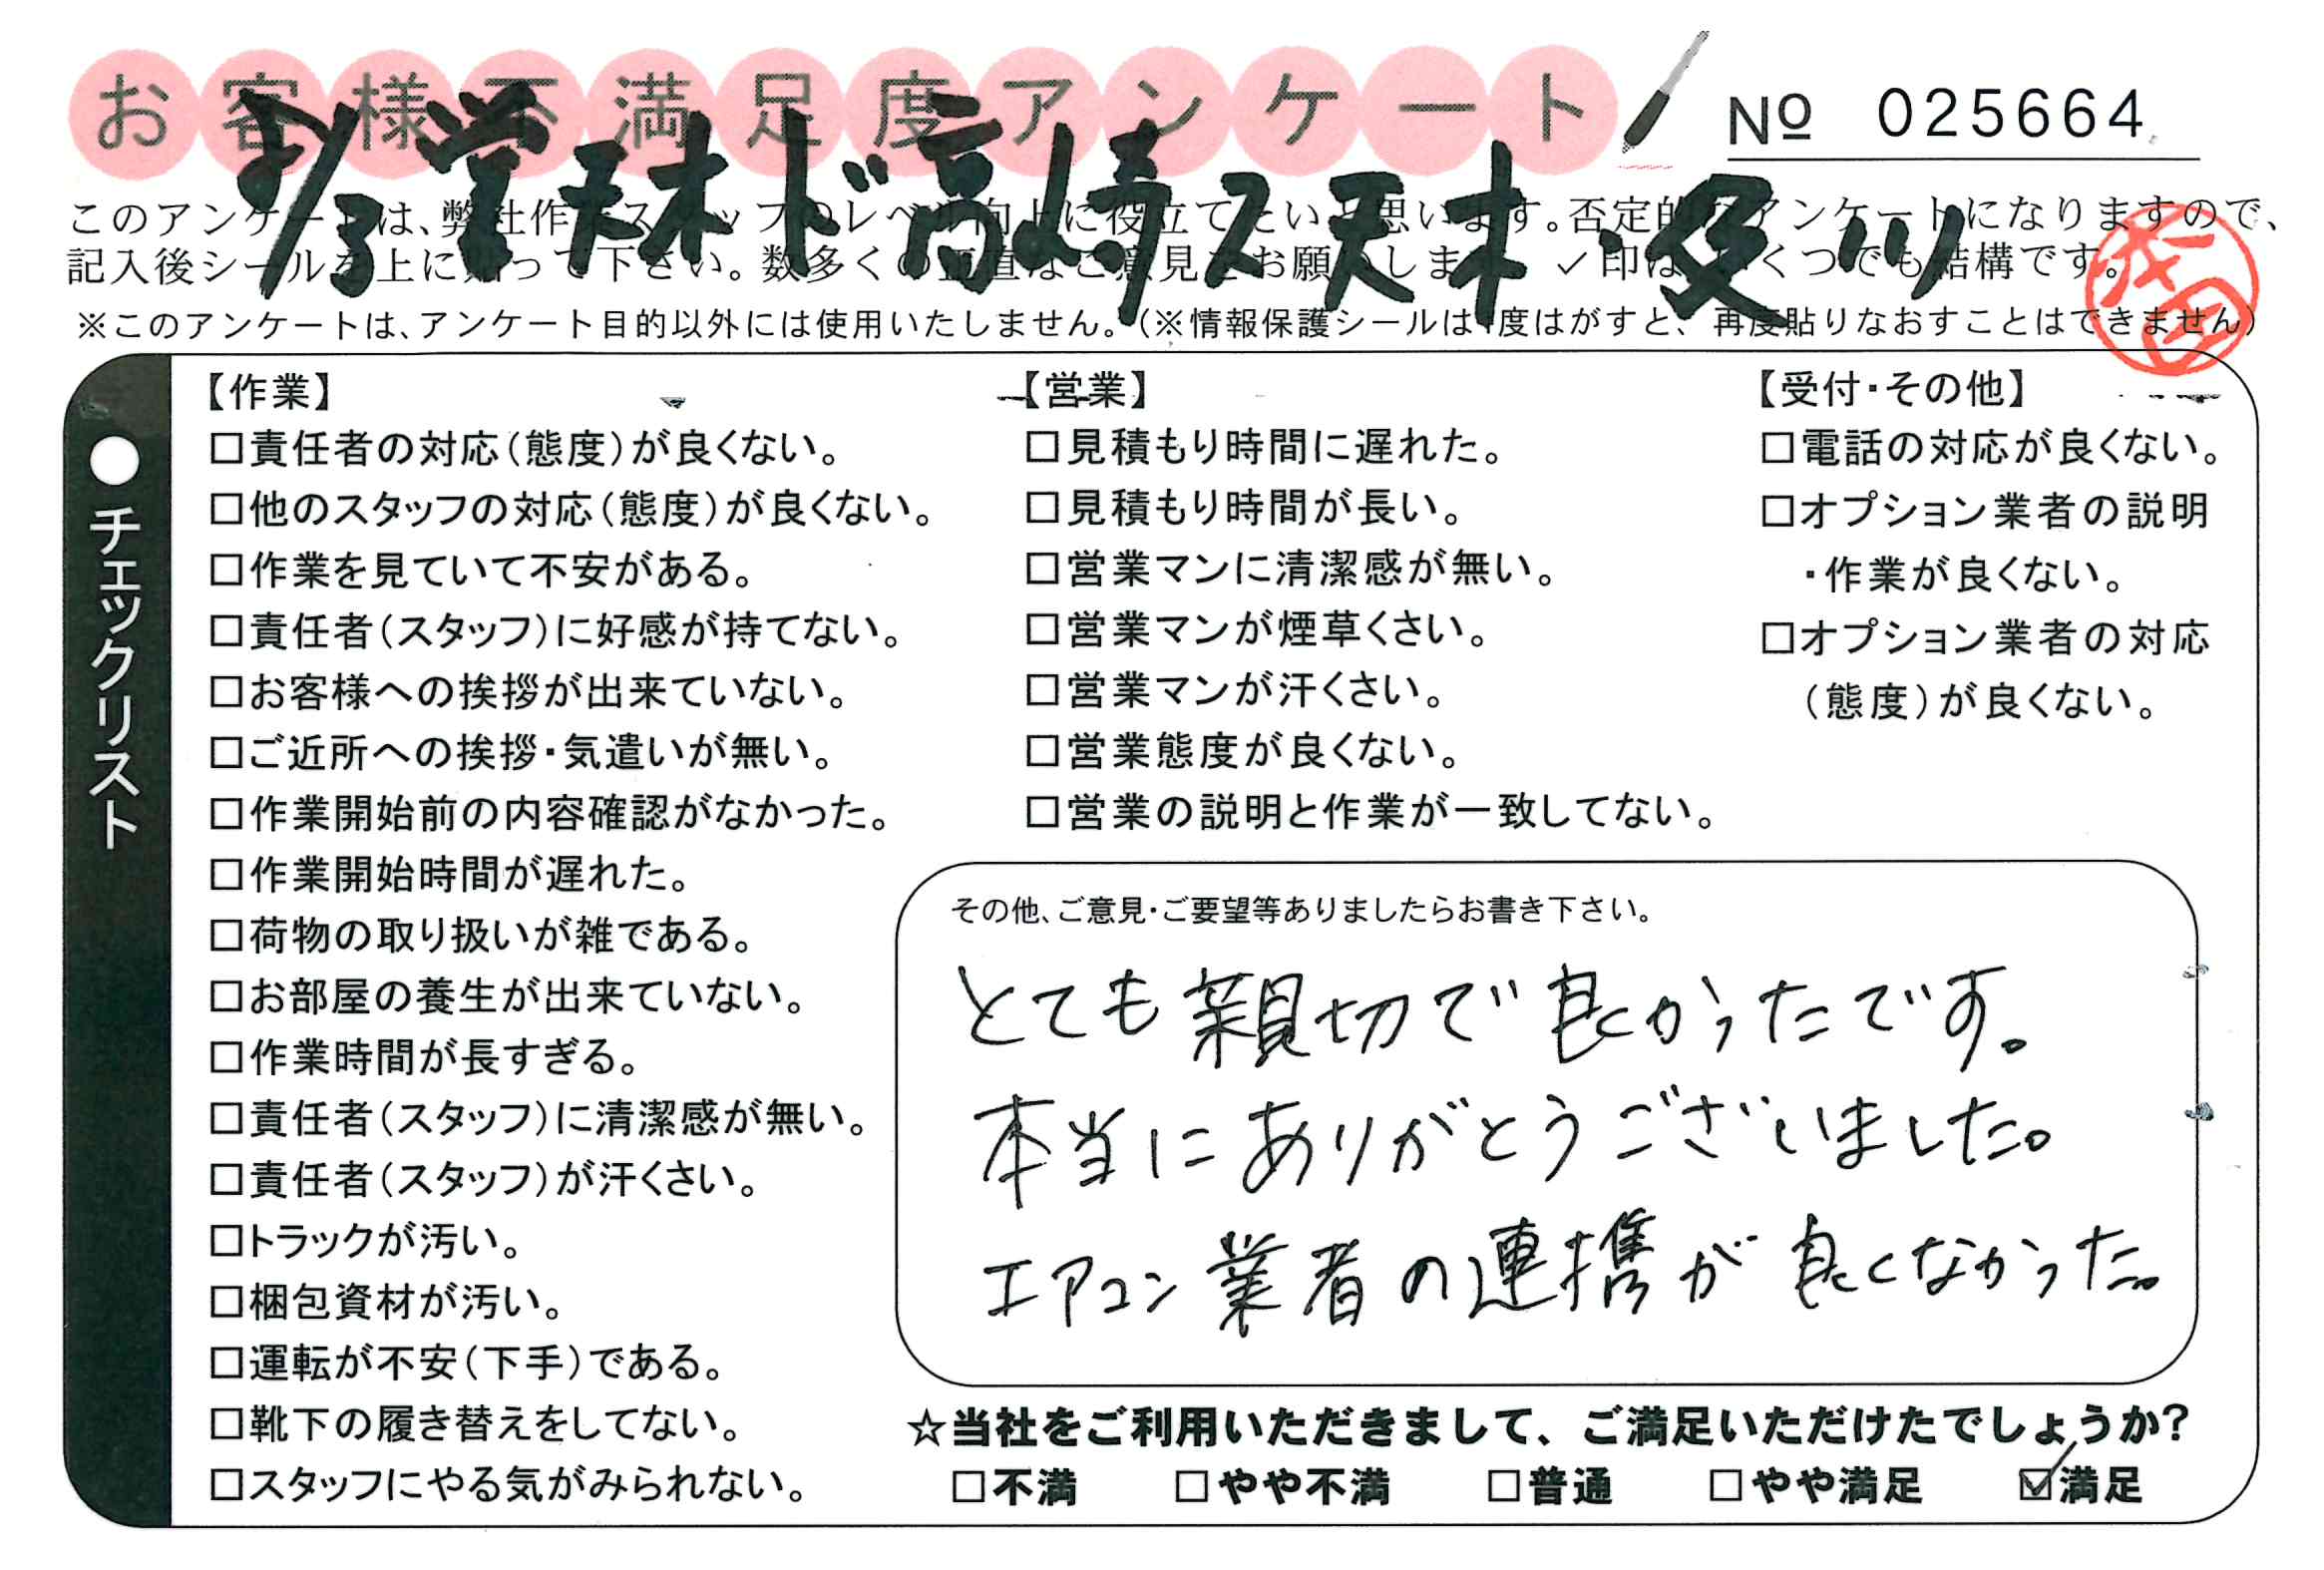 お客様不満足度アンケート
№ 025664
このアンケートは、弊社作業スタッフのレベル向上に役立てたいと思います。否定的なアンケートになりますので、
記入後シールを上に貼って下さい。数多くの正直なご意見をお願いします。✓印はいくつでも結構です。
※このアンケートは、アンケート目的以外には使用いたしません。(※情報保護シールは1度はがすと、再度貼りなおすことはできません)
●チェックリスト
【作業】
□責任者の対応(態度)が良くない。
□他のスタッフの対応(態度)が良くない。
□作業を見ていて不安がある。
□責任者(スタッフ)に好感が持てない。
□お客様への挨拶が出来ていない。
□ご近所への挨拶・気遣いが無い。
□作業開始前の内容確認がなかった。
□作業開始時間が遅れた。
□荷物の取り扱いが雑である。
□お部屋の養生が出来ていない。
□作業時間が長すぎる。
□責任者(スタッフ)に清潔感が無い。
□責任者(スタッフ)が汗くさい。
□トラックが汚い。
□梱包資材が汚い。
□運転が不安(下手)である。
□靴下の履き替えをしてない。
□スタッフにやる気がみられない。
【営業】
□見積もり時間に遅れた。
□見積もり時間が長い。
□営業マンに清潔感が無い。
□営業マンが煙草くさい。
□営業マンが汗くさい。
□営業態度が良くない。
□営業の説明と作業が一致してない。
【受付・その他】
□電話の対応が良くない。
□オプション業者の説明
・作業が良くない。
□オプション業者の対応
(態度)が良くない。
その他、ご意見・ご要望等ありましたらお書き下さい。
とても親切で良かったです。
本当にありがとうございました。
エアコン業者の連携が良くなかった。
☆当社をご利用いただきまして、ご満足いただけたでしょうか?
□不満 □やや不満 □普通 □やや満足 ☑満足